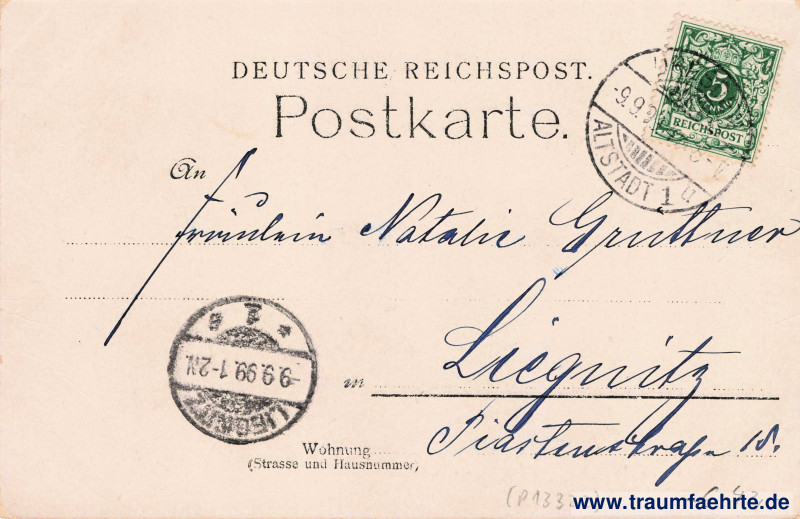 DEUTSCHE REICHSPOST.
Postkarte.
5
REICHSPOST
-9.9.9
ALTSTADT 1 u
An
Fräulein Natalie Gruttner
in Liegnitz
Piastenstraße 18.
Wohnung
(Strasse und Hausnummer)
LIEGNITZ
-9.9.99.1-2N.
* 1 g
www.traumfaehrte.de